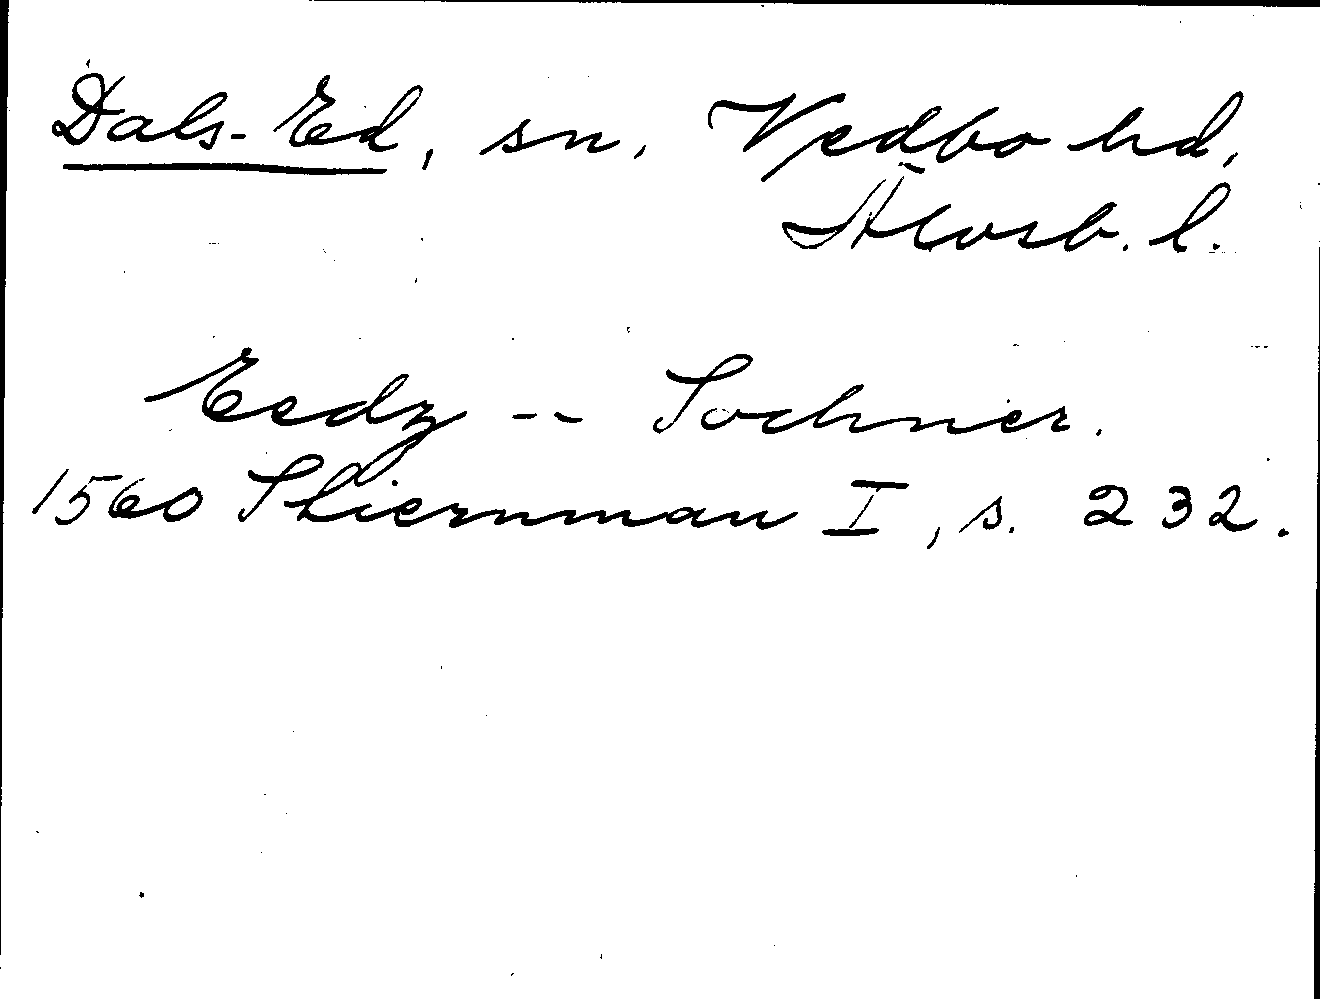 Dals-Ed, sn, Vedbo hd,
Älvsb. l.
Eedz -- Sochner.
1560 Stiernman I, s. 232.